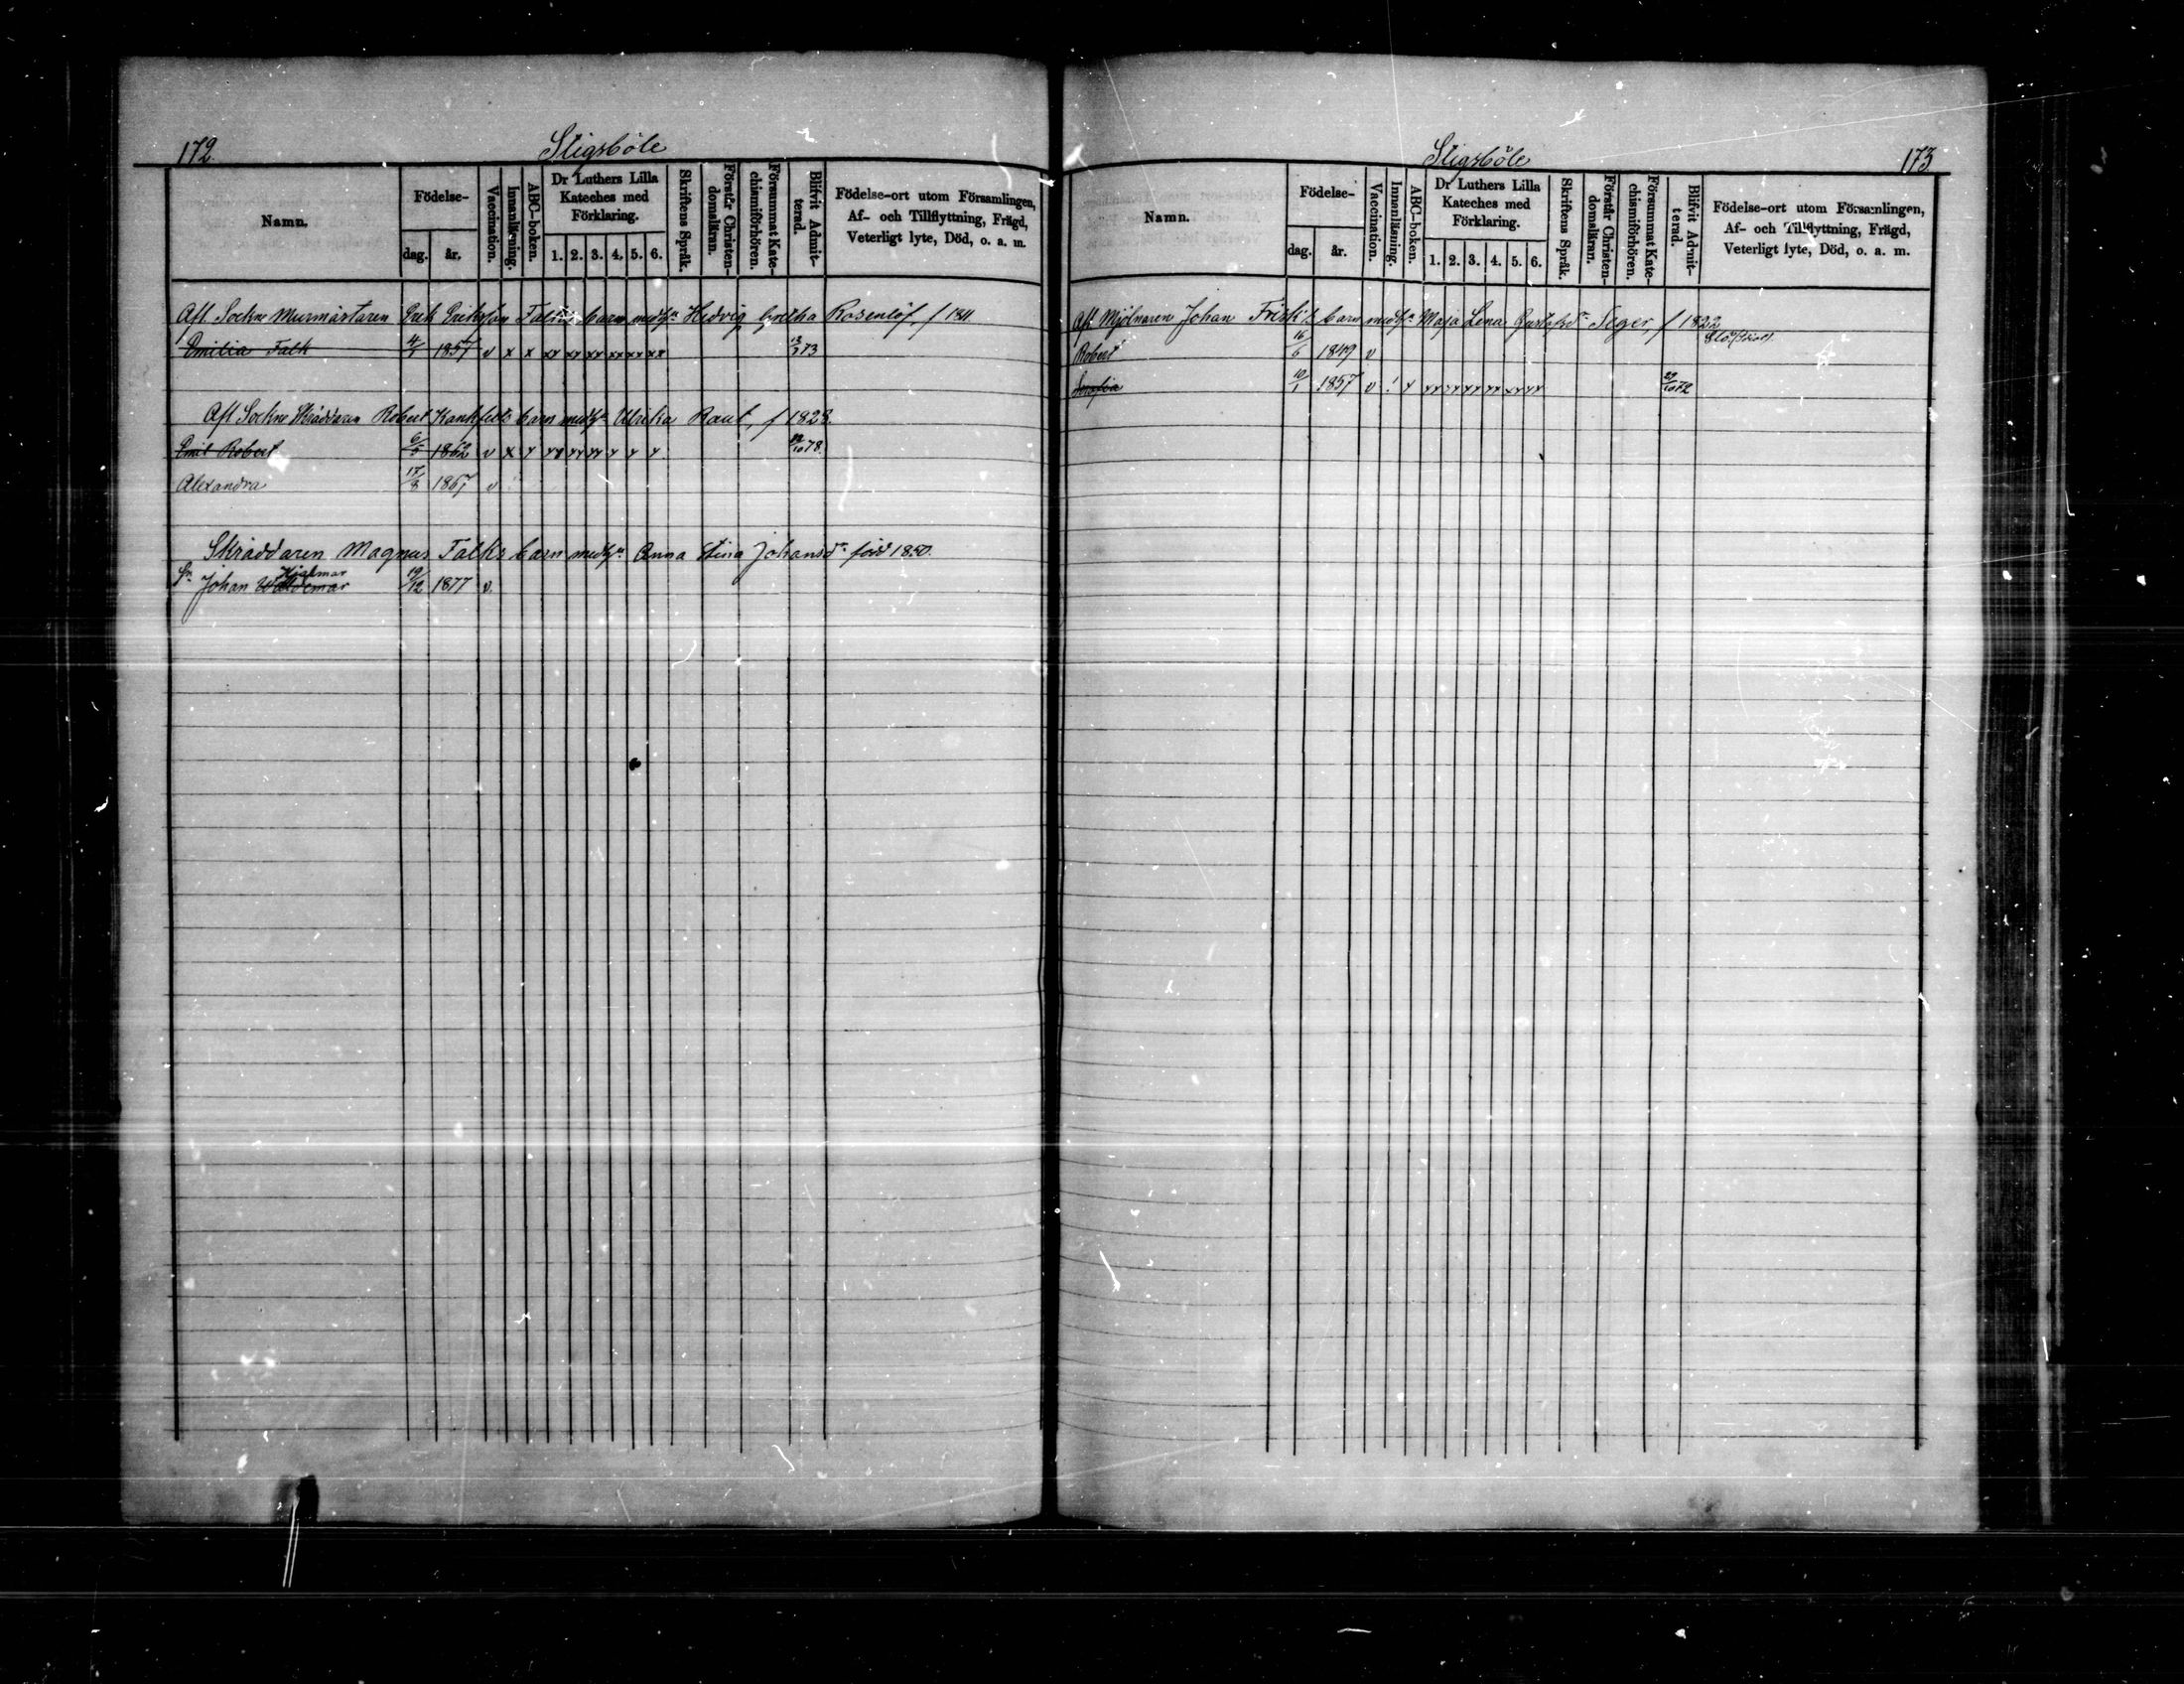 172. Stigsböle
Namn. Födelse- dag. år. Vaccination. Innanläsning. ABC-boken. Dr Luthers Lilla Kateches med Förklaring. 1. 2. 3. 4. 5. 6. Skriftens Språk. Förstår Christendomsläran. Försummat Katechismiförhören. Blifvit Admitterad. Födelse-ort utom Församlingen, Af- och Tillflyttning, Frägd, Veterligt lyte, Död, o. a. m.
Aft. Sockne Murmästaren Erik Eriksson barn med h. Hedvig Rosenlöf, f 1811
Emilia Falk 4/1 1857 v x x xx xx xx xx xx xx 73
Aft Sockne Skräddaren Robert barn med h. Ulrika Raut, f 1828.
Emil Robert 6/5 1862 v x x xx xx xx x x x 78.
Alexandra 17/8 1867 v
Skräddaren Magnus Falks barn med h. Anna Stina Johansdr född 1850.
Hjalmar
Sn Johan Waldemar 19/12 1877 v.
Stigsböle 173.
Namn. Födelse- dag. år. Vaccination. Innanläsning. ABC-boken. Dr Luthers Lilla Kateches med Förklaring. 1. 2. 3. 4. 5. 6. Skriftens Språk. Förstår Christendomsläran. Försummat Katechismiförhören. Blifvit Admitterad. Födelse-ort utom Församlingen, Af- och Tillflyttning, Frägd, Veterligt lyte, Död, o. a. m.
Aft Mjölnaren Johan Frisk's barn med h. Maja Lena Gustafsdr Seger f 1822
Robert 16/6 1849 v
19/1 1857 v x xx xx xx xx xx xx 29/10 72